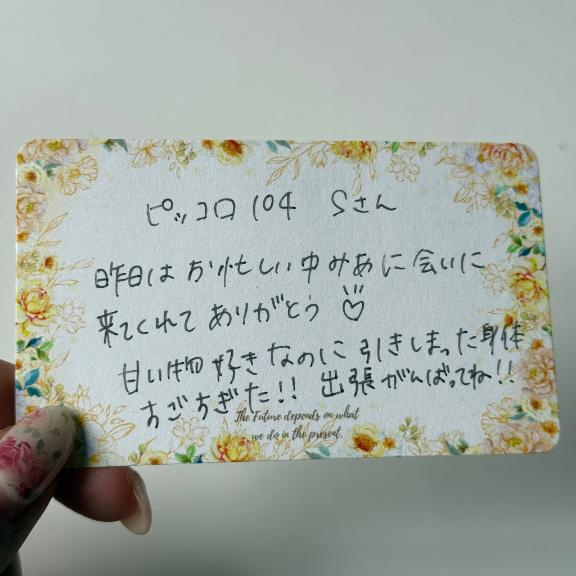 ピッコロ 104 Sさん
昨日は お忙しい中 みあに 会いに
来てくれて ありがとう ♡
甘い物 好き なのに 引きしまった 身体
すごすぎた!! 出張 がんばってね!!
The Future depends on what
we do in the present.